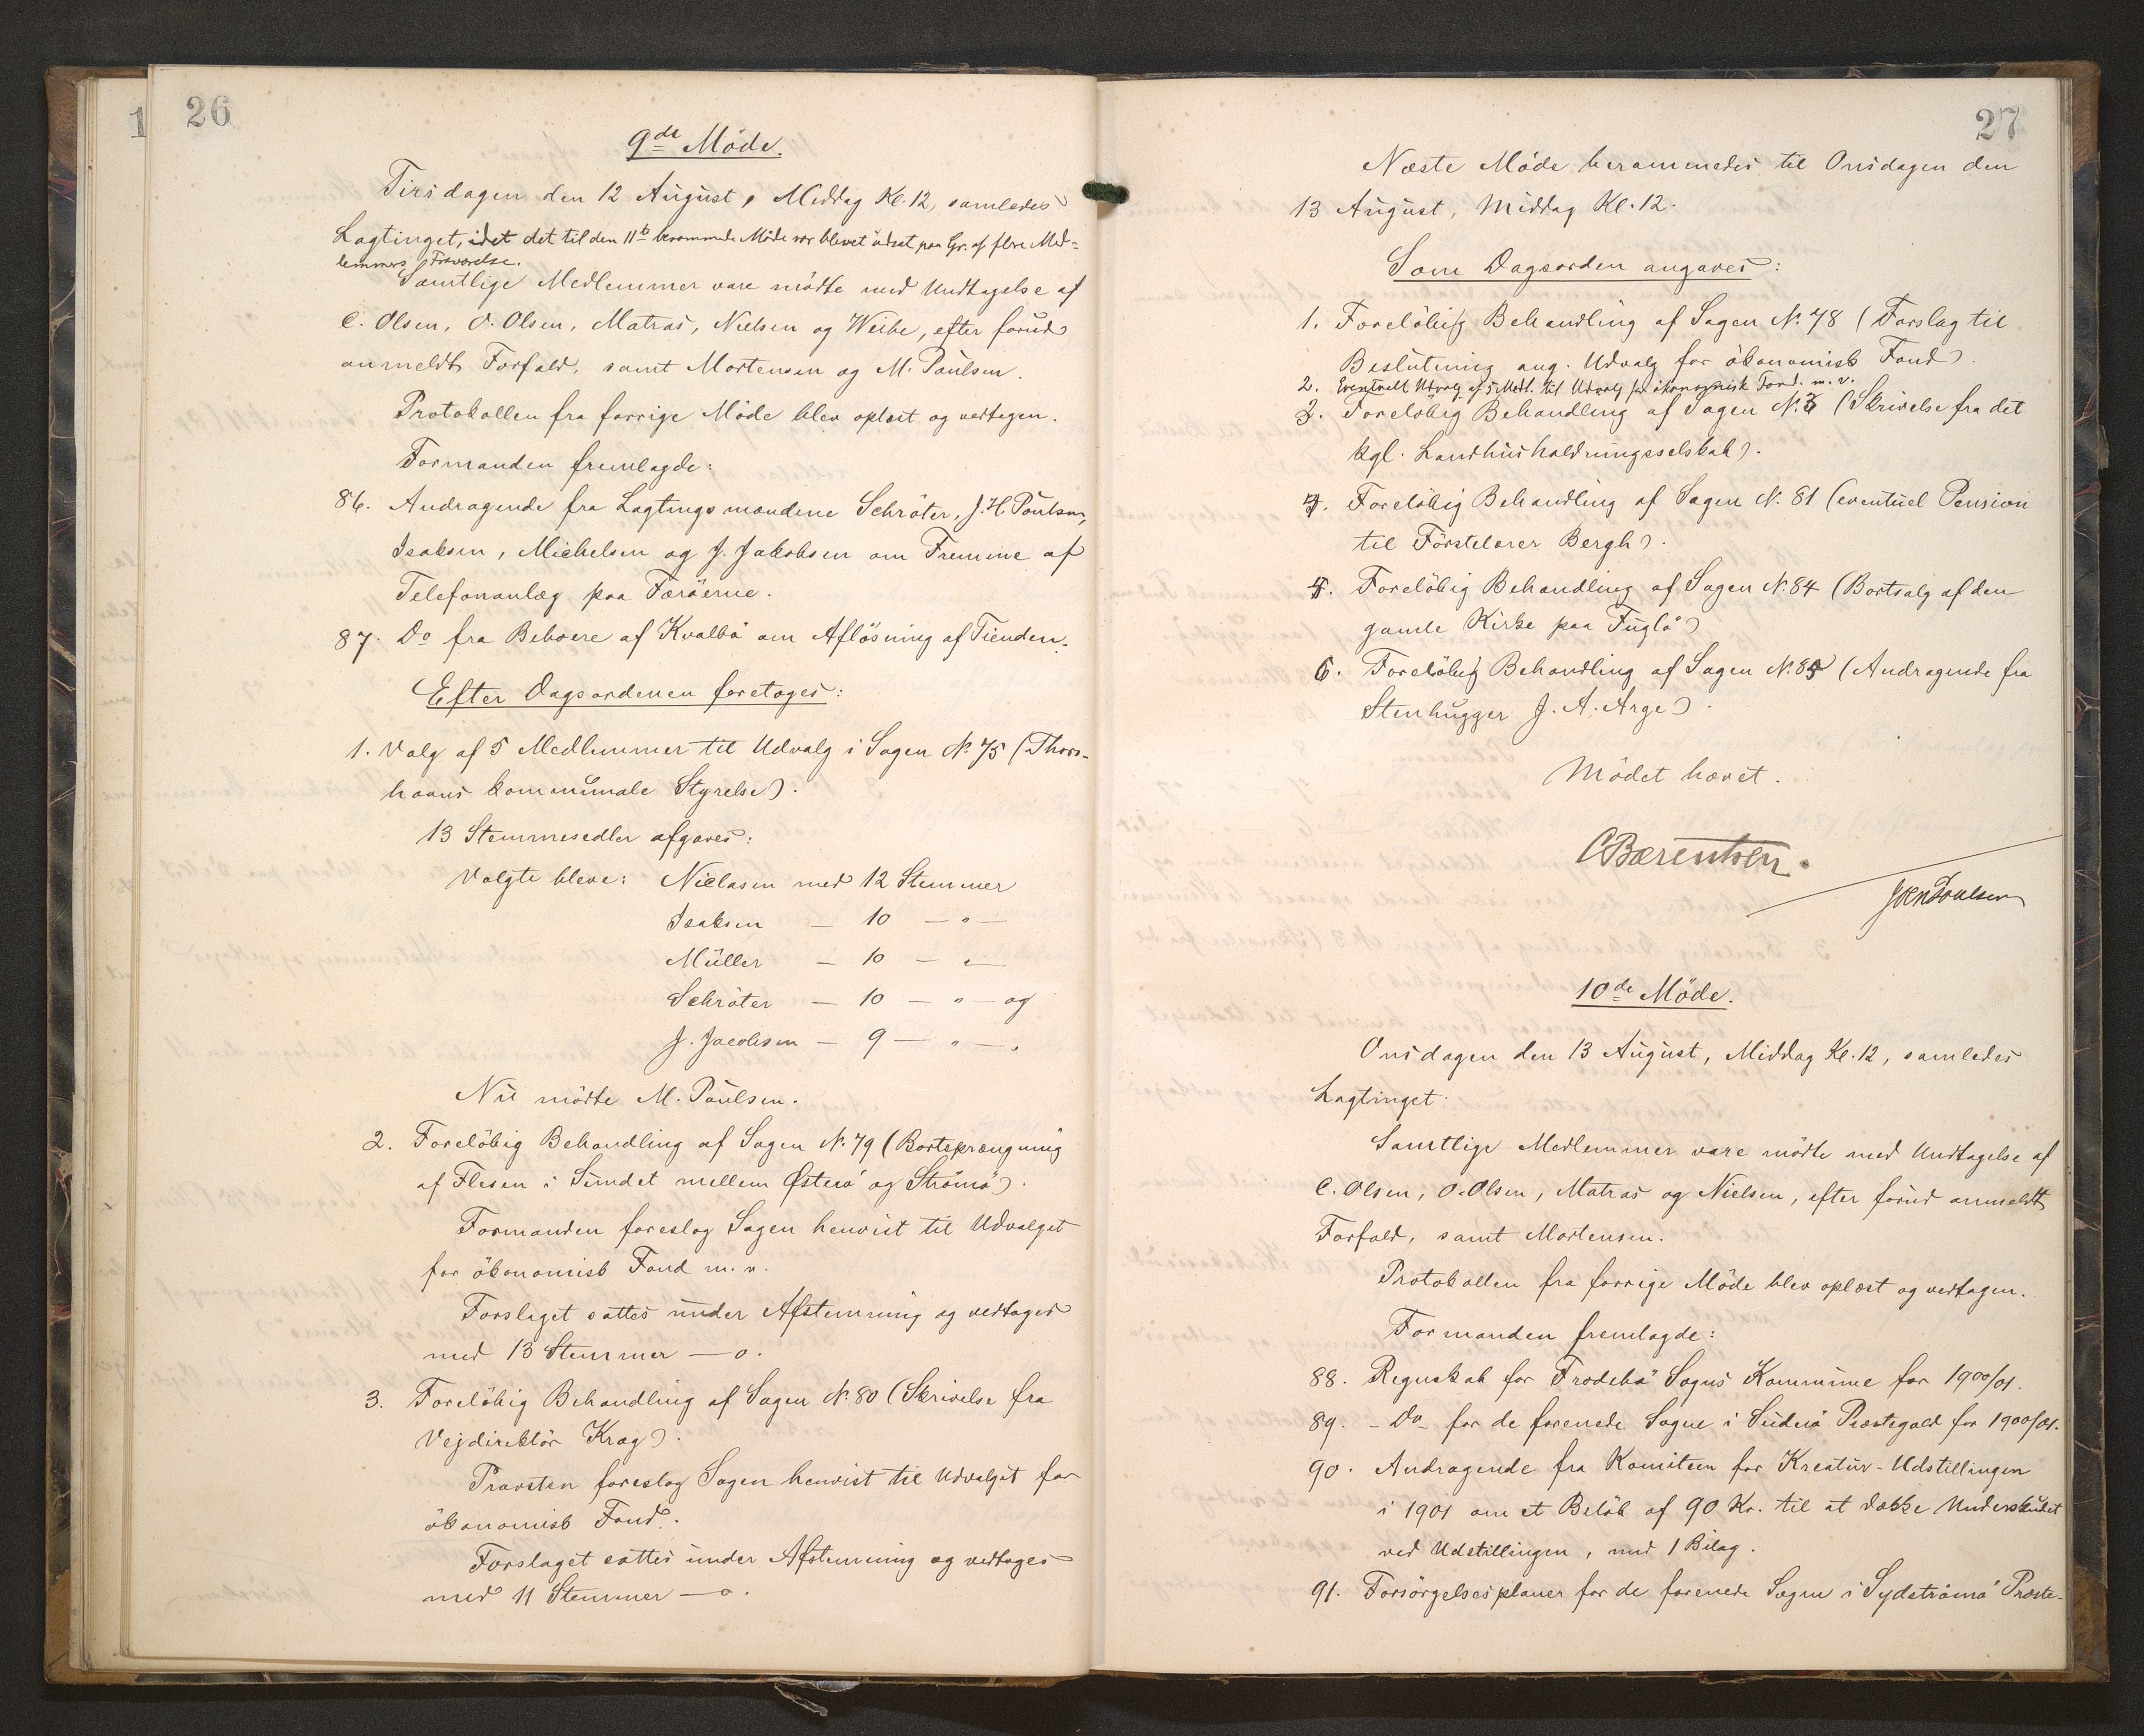 26
9de Möde.
Tirsdagen den 12 August, Middag Kl. 12, samledes
Lagtinget, idet det til den 11te berammede Møde var blevet udsat paa Gr. af flere Med-
lemmers Fraværelse.
Samtlige Medlemmer vare mödte med Undtagelse af
C. Olsen, O. Olsen, Matras, Nielsen og Weihe, efter forud
anmeldt Forfald, samt Mortensen og M. Paulsen.
Protokollen fra forrige Möde blev oplæst og vedtagen.
Formanden fremlagde:
86. Andragende fra Lagtingsmændene Schröter, J. H. Poulsen,
Isaksen, Michelsen og J. Jakobsen om Fremme af
Telefonanlæg paa Færöerne.
87. Do fra Beboere af Kvalbö om Aflösning af Tienden.
Efter Dagsordenen foretoges:
1. Valg af 5 Medlemmer til Udvalg i Sagen No. 75 (Thors-
havns kommunale Styrelse).
13 Stemmesedler afgaves:
Valgte bleve: Niclasen med 12 Stemmer
Isaksen — 10 — " —
Müller — 10 — " —
Schröter — 10 — " — og
J. Jacobsen — 9 — " — .
Nu mödte M. Paulsen.
2. Forelöbig Behandling af Sagen No. 79 (Bortsprængning
af Flesen i Sundet mellem Østerö og Strömö).
Formanden foreslog Sagen henvist til Udvalget
for ökonomisk Fond m. v.
Forslaget sattes under Afstemning og vedtoges
med 13 Stemmer — o.
3. Forelöbig Behandling af Sagen No. 80 (Skrivelse fra
Vejdirektör Krag).
Provsten foreslog Sagen henvist til Udvalget for
ökonomisk Fond.
Forslaget sattes under Afstemning og vedtoges
med 11 Stemmer — o.
27
Næste Möde berammedes til Onsdagen den
13 August, Middag Kl. 12.
Som Dagsorden angaves:
1. Forelöbig Behandling af Sagen No. 78 (Forslag til
Beslutning ang. Udvalg for ökonomisk Fond).
2. Eventuelt Udvalg af 5 Medl. til Udvalg for økonomisk Fond. m. v.
3. Forelöbig Behandling af Sagen No. 3 (Skrivelse fra det
kgl. Landhusholdningsselskab).
4. Forelöbig Behandling af Sagen No. 81 (eventuel Pension
til Förstelærer Bergh).
5. Forelöbig Behandling af Sagen No. 84 (Bortsalg af den
gamle Kirke paa Fuglö)
6. Forelöbig Behandling af Sagen No. 85 (Andragende fra
Stenhugger J. A. Arge).
Mödet hævet.
C Bærentsen.
10de Möde.
Onsdagen den 13 August, Middag Kl. 12, samledes
Lagtinget.
Samtlige Medlemmer vare mödte med Undtagelse af
C. Olsen, O. Olsen, Matras og Nielsen, efter forud anmeldt
Forfald, samt Mortensen.
Protokollen fra forrige Möde blev oplæst og vedtagen.
Formanden fremlagde:
88. Regnskab for Frodebö Sogns Kommune for 1900/01.
89. - Do - for de forenede Sogne i Suderö Præstegæld for 1900/01.
90. Andragende fra Komiteen for Kreatur-Udstillingen
i 1901 om et Belöb af 90 Kr. til at dække Underskudet
ved Udstillingen, med 1 Bilag.
91. Forsörgelsesplaner for de forenede Sogne i Sydströmö Præste-